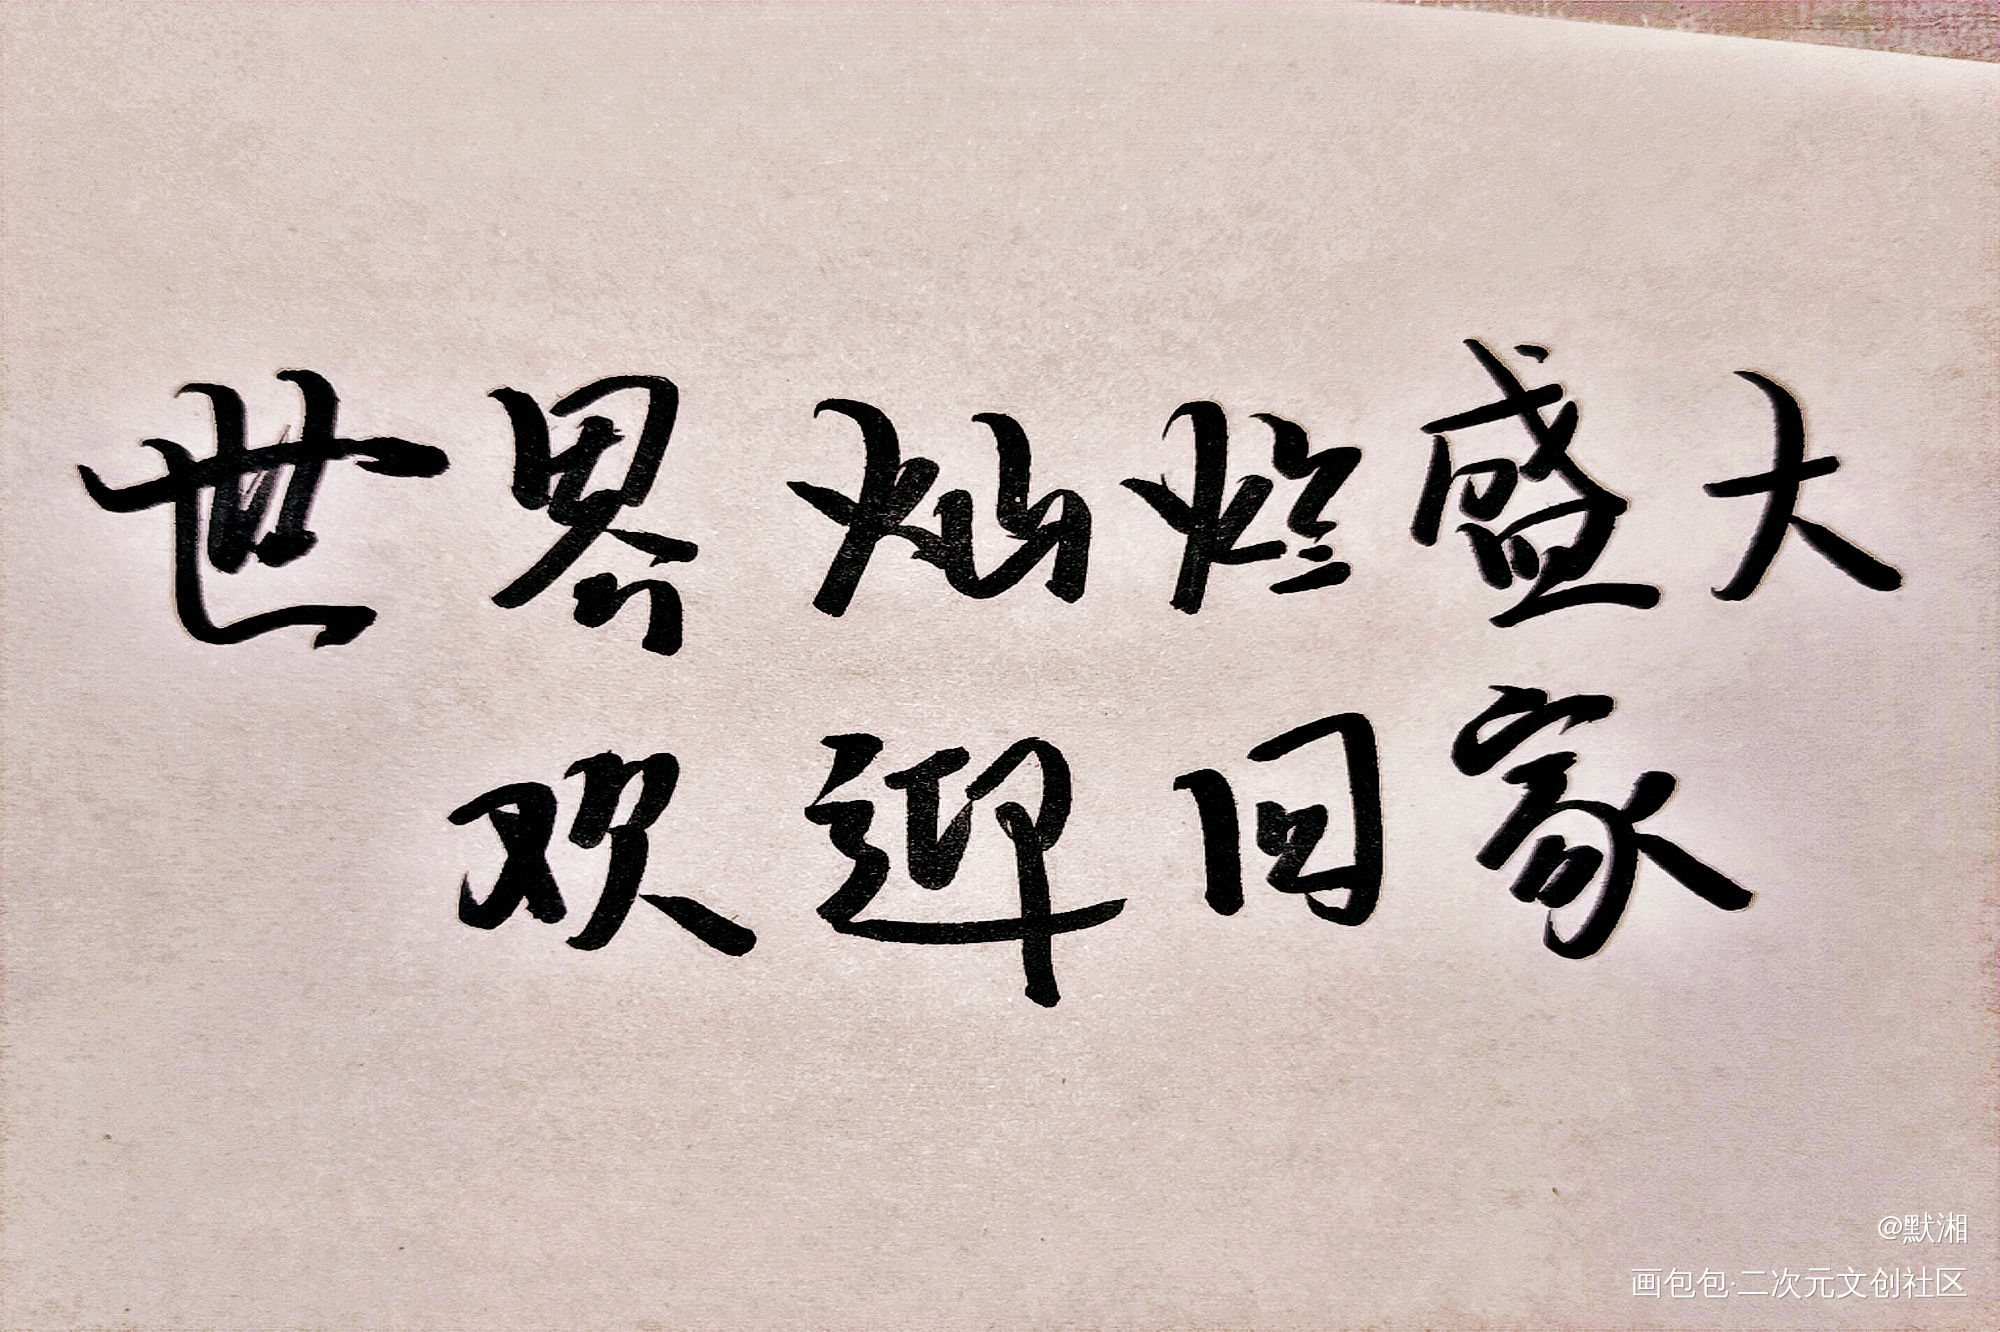 世界灿烂盛大
欢迎回家
@默湘
画包包·二次元文创社区